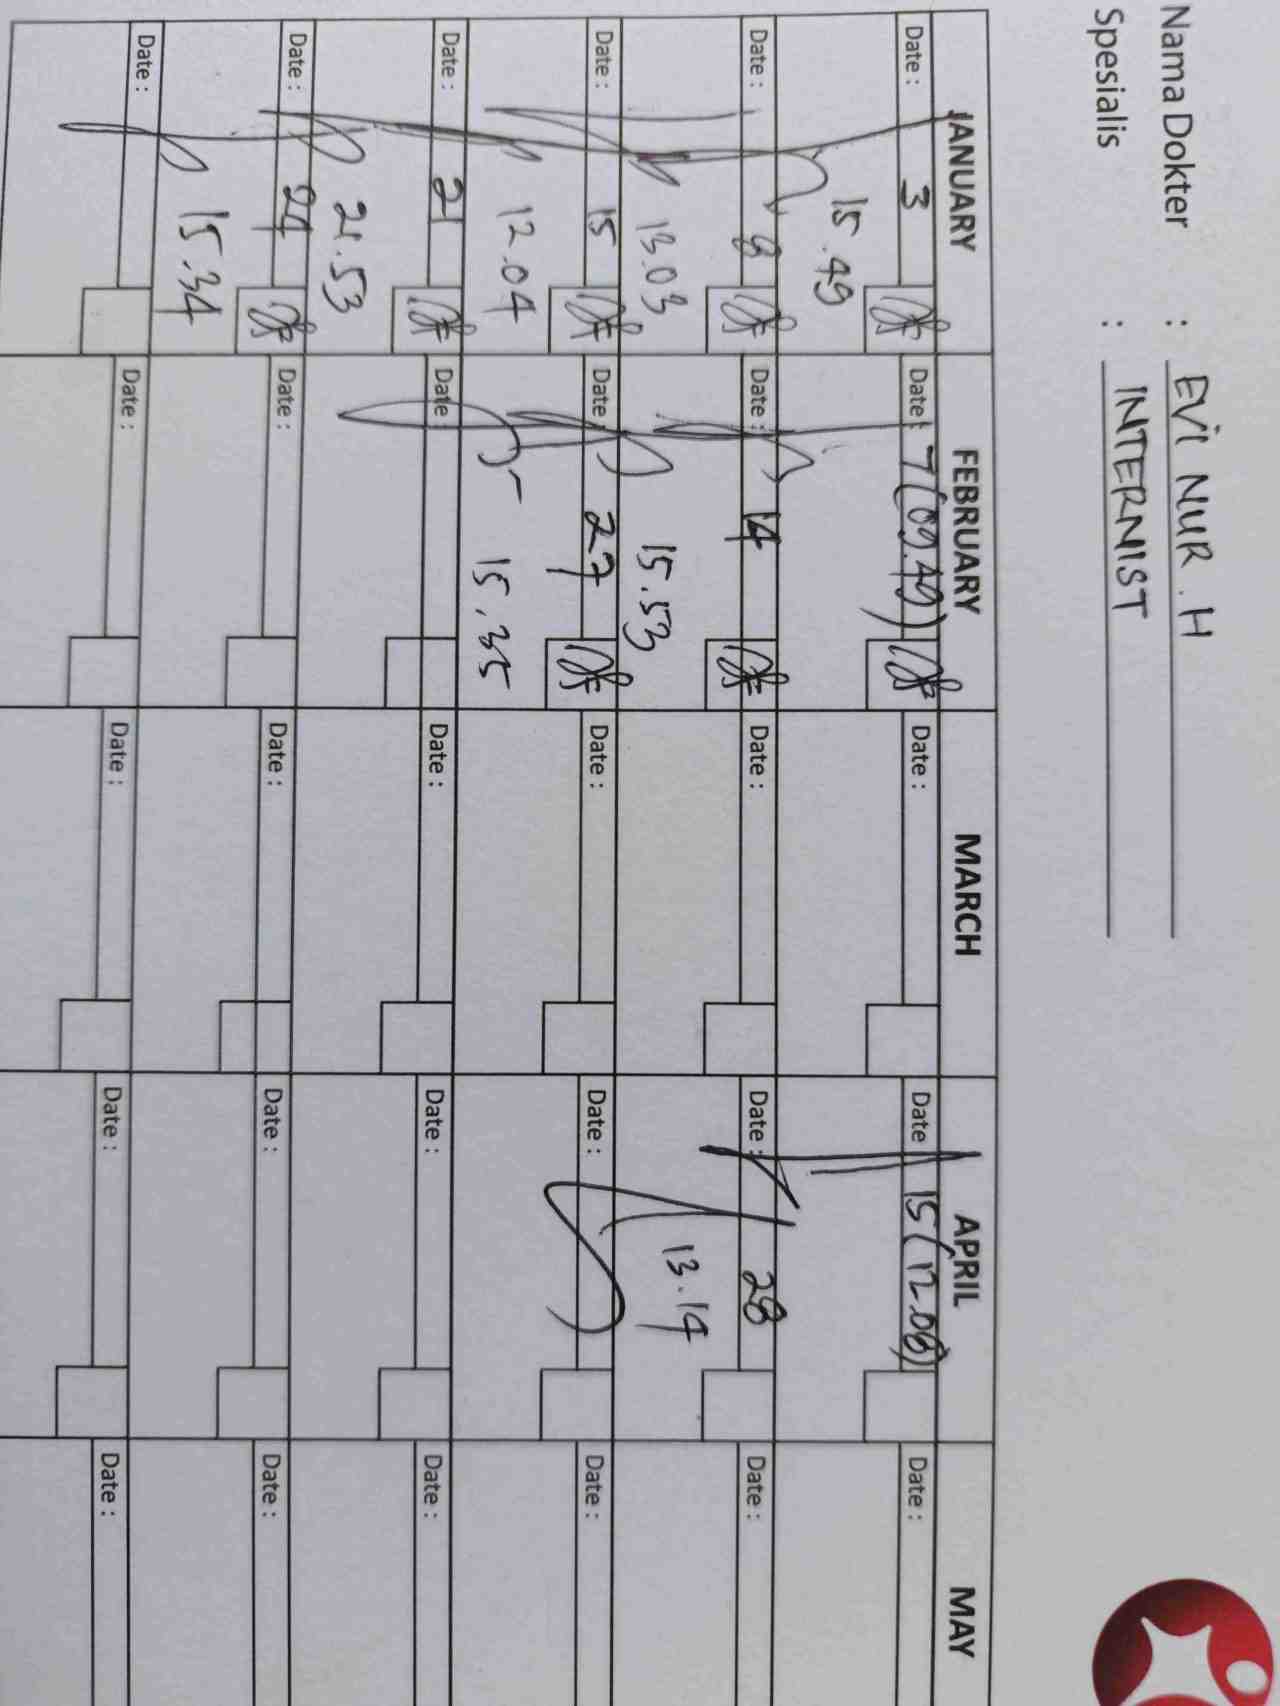 Nama Dokter : EVI NUR . H
Spesialis : INTERNIST
JANUARY FEBRUARY MARCH APRIL MAY
Date : 3 Date : 7 (09.49) Date : Date : 15 (12.08) Date :
15.49
Date : 8 Date : 14 Date : Date : 28 Date :
13.03 15.53 13.14
Date : 15 Date : 27 Date : Date : Date :
12.04 15.35
Date : 21 Date : Date : Date : Date :
21.53
Date : 24 Date : Date : Date : Date :
15.34
Date : Date : Date : Date : Date :